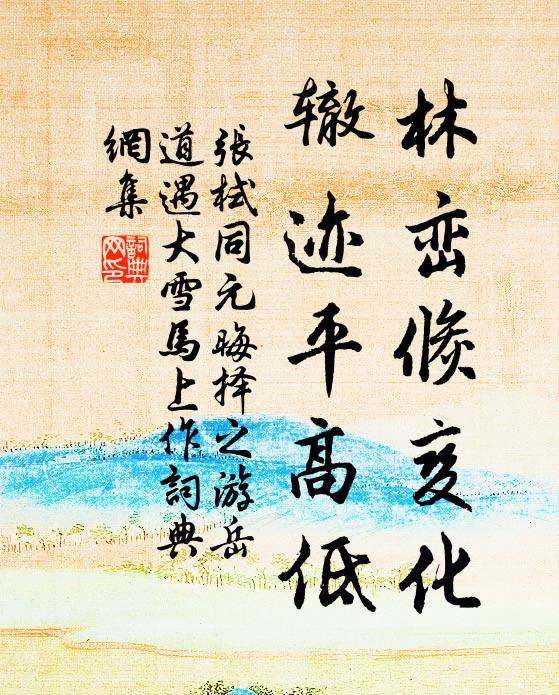 林峦倏变化
辙迹平高低
張栻同元晦择之游岳
道遇大雪馬上作詞典
網集
詞典
网印